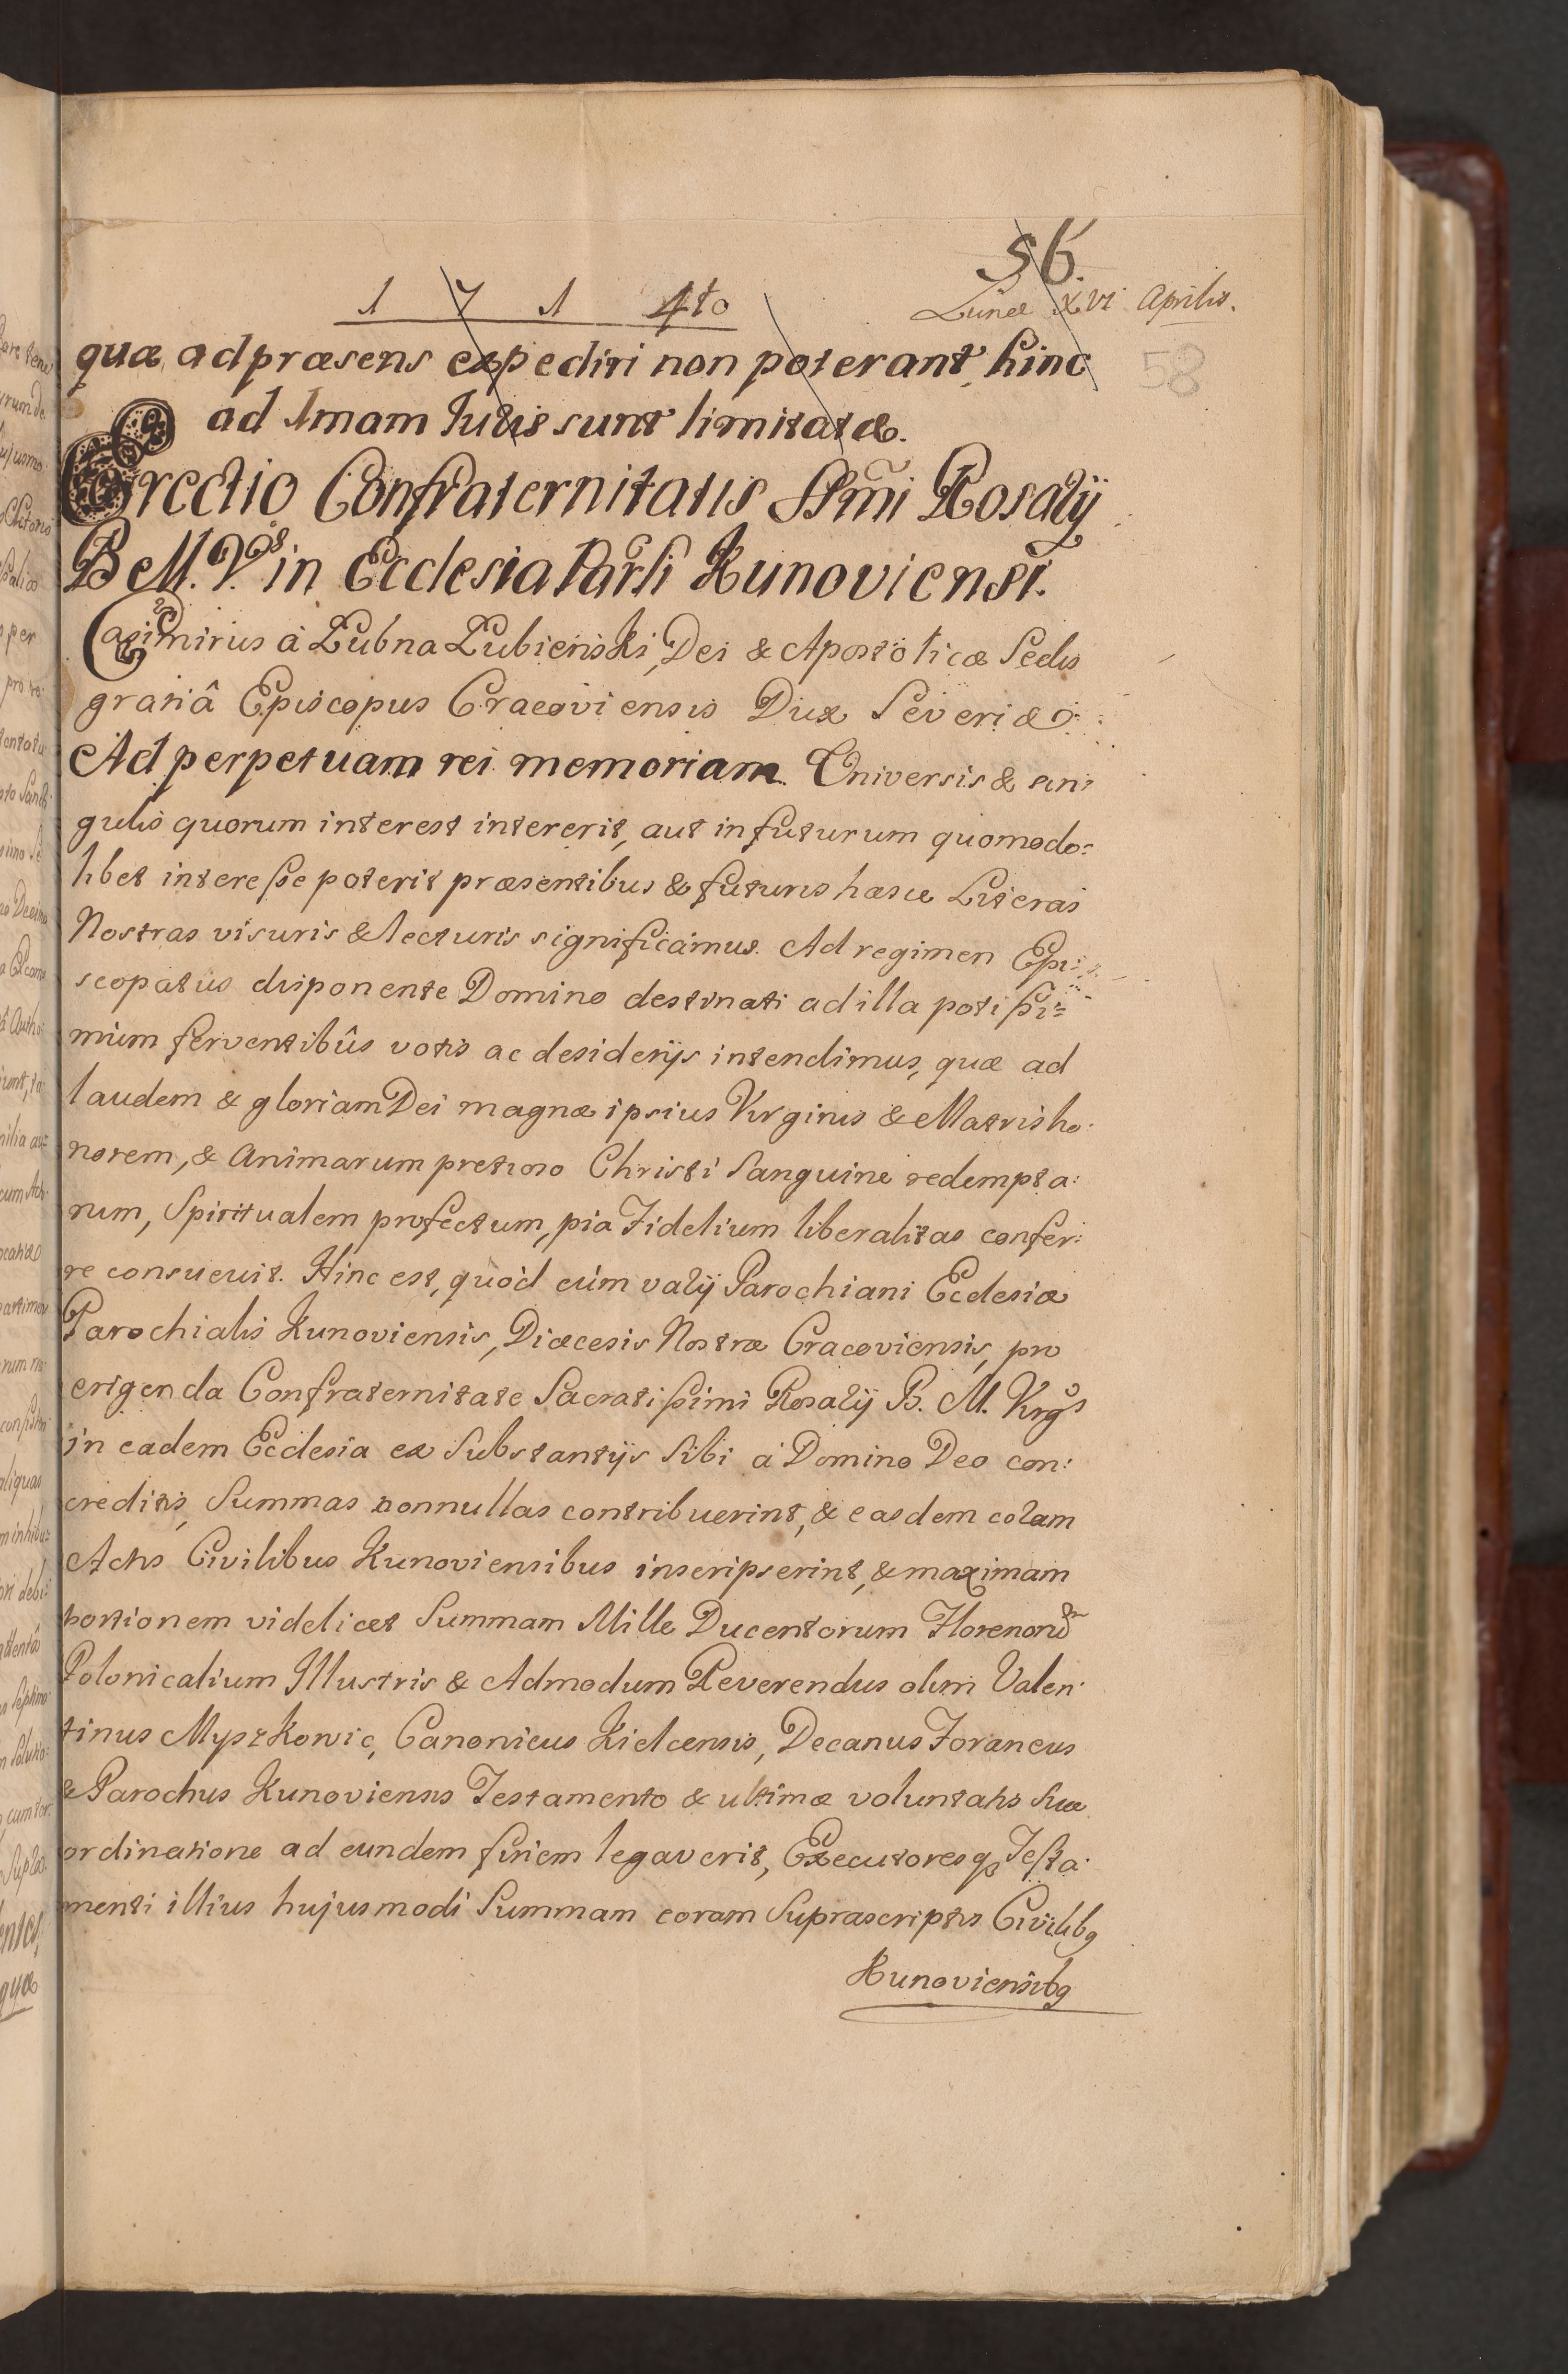 56.
1 7 1 4to
Lunæ XVI Aprilis.
58
quæ ad præsens expediri non poterant, hinc
ad 1mam Juris sunt limitatæ.
Erectio Confraternitatis SSmi Rosarÿ
B. M. V.is in Ecclesia Parli Kunoviensi.
Casimirus à Łubna Łubieński, Dei & Apostolicæ Sedis
gratiâ Episcopus Cracoviensis Dux Severiæ.
Ad perpetuam rei memoriam. Universis & sin:
gulis quorum interest intererit, aut in futurum quomodo:
libet interesse poterit præsentibus & futuris hasce Literas
Nostras visuris & lecturis significamus. Ad regimen Epi:
scopatûs disponente Domino destinati ad illa potissi:
mùm ferventibûs votis ac desiderijs intendimus, quæ ad
laudem & gloriam Dei magnæ ipsius Virginis & Matris ho:
norem, & Animarum pretioso Christi Sanguine redempta:
rum, Spiritualem profectum, pia Fidelium liberalitas confer:
re consuevit. Hinc est, quòd cùm varÿ Parochiani Ecclesiæ
Parochialis Kunoviensis, Diæcesis Nostræ Cracoviensis, pro
erigenda Confraternitate Sacratissimi Rosarÿ B. M. Virgs
in eadem Ecclesia ex Substantijs Sibi à Domino Deo con:
creditis, Summas nonnullas contribuerint, & easdem coram
Actis Civilibus Kunoviensibus inscripserint, & maximam
portionem videlicet Summam Mille Ducentorum Florenorum
Polonicalium Illustris & Admodum Reverendus olim Valen:
tinus Myszkowic, Canonicus Kielcensis, Decanus Foraneus
& Parochus Kunoviensis Testamento & ultimæ voluntatis Suæ
ordinatione ad eundem finem legaverit, Executoresq; Testa:
menti illius hujusmodi Summam coram Suprascriptis Civilibg
Kunoviensibg